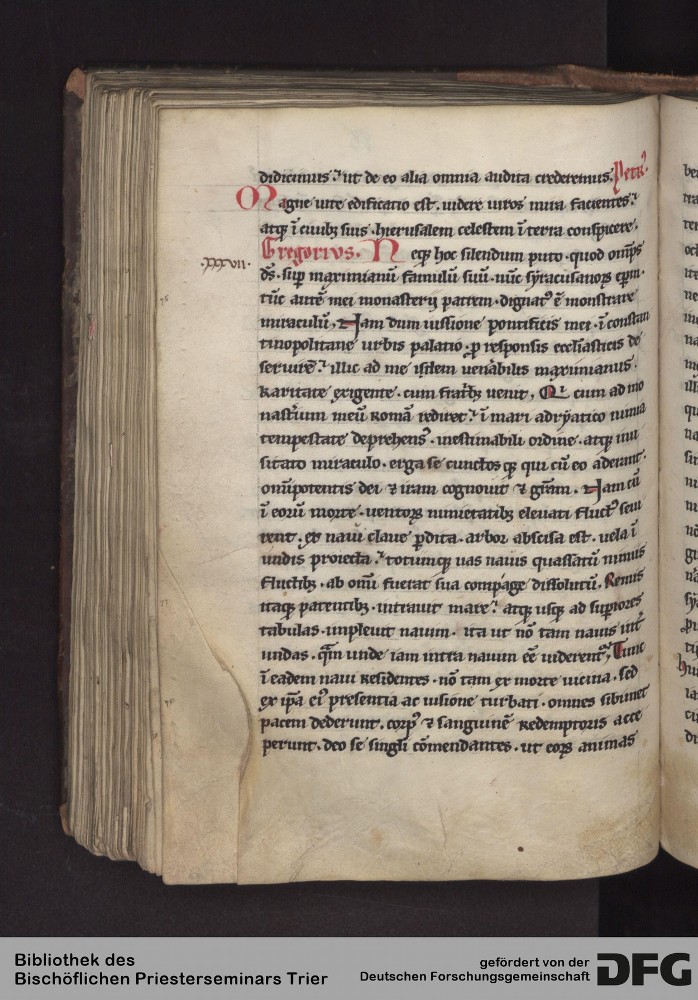 didicimus. ut de eo alia omnia audita crederemus. Petrꝰ.
Magne uite edificatio est. uidere uiros mira facientes.
atqꝫ ī ciuibꝫ suis. hierusalem celestem ī terra conspicere.
Gregorius. Neqꝫ hoc silendum puto. quod omp̄s
.xxxvii.
d̄s. suꝑ maximianū famulū suū. nūc syracusanoꝝ ep̄m.
tūc autē mei monasterij patrem. dignatꝰ ē monstrare
miraculū. Iam dum iussione pontificis mei. ī constan
tinopolitane urbis palatio. ꝓ responsis eccl̄iasticis de
seruirē. illic ad me isdem uenābilis maximianus.
karitate exigente. cum frat̄bꝫ uenit. Qi cum ad mo
nast̄ium meū romā rediret. ī mari adryatico nimia
tempestate deprehensꝰ. inestimabili ordine. atqꝫ inu
sitato miraculo. erga se cunctos qꝫ qui cū eo aderant.
omīpotentis dei ⁊ iram cognouit ⁊ gr̄am. Nam cū
ī eorū morte. uentoꝝ nimietatibꝫ eleuati fluctꝰ seui
rent. ex naui claue ꝑdita. arbor abscisa est. uela ī
undis proiecta. totumqꝫ uas nauis quassatū nimiis
fluctibꝫ. ab om̄i fuerat sua compage dissolutū. Remis
itaqꝫ patentibꝫ. intrauit mare. atqꝫ usqꝫ ad suꝑiores
tabulas. impleuit nauim. ita ut nō tam nauis int̄
undas. q̄m unde iam intra nauim ēe uiderent᷑. Tunc
ī eadem naui residentes. nō tam ex morte uicina. sed
ex ip̄a eiꝰ presentia ac uisione turbati. omnes sibimet
pacem dederunt. corpꝰ ⁊ sanguinē redemptoris acce
perunt. deo se singl̄i cōmendantes. ut eoꝝ animas
Bibliothek des
Bischöflichen Priesterseminars Trier
gefördert von der
Deutschen Forschungsgemeinschaft
DFG